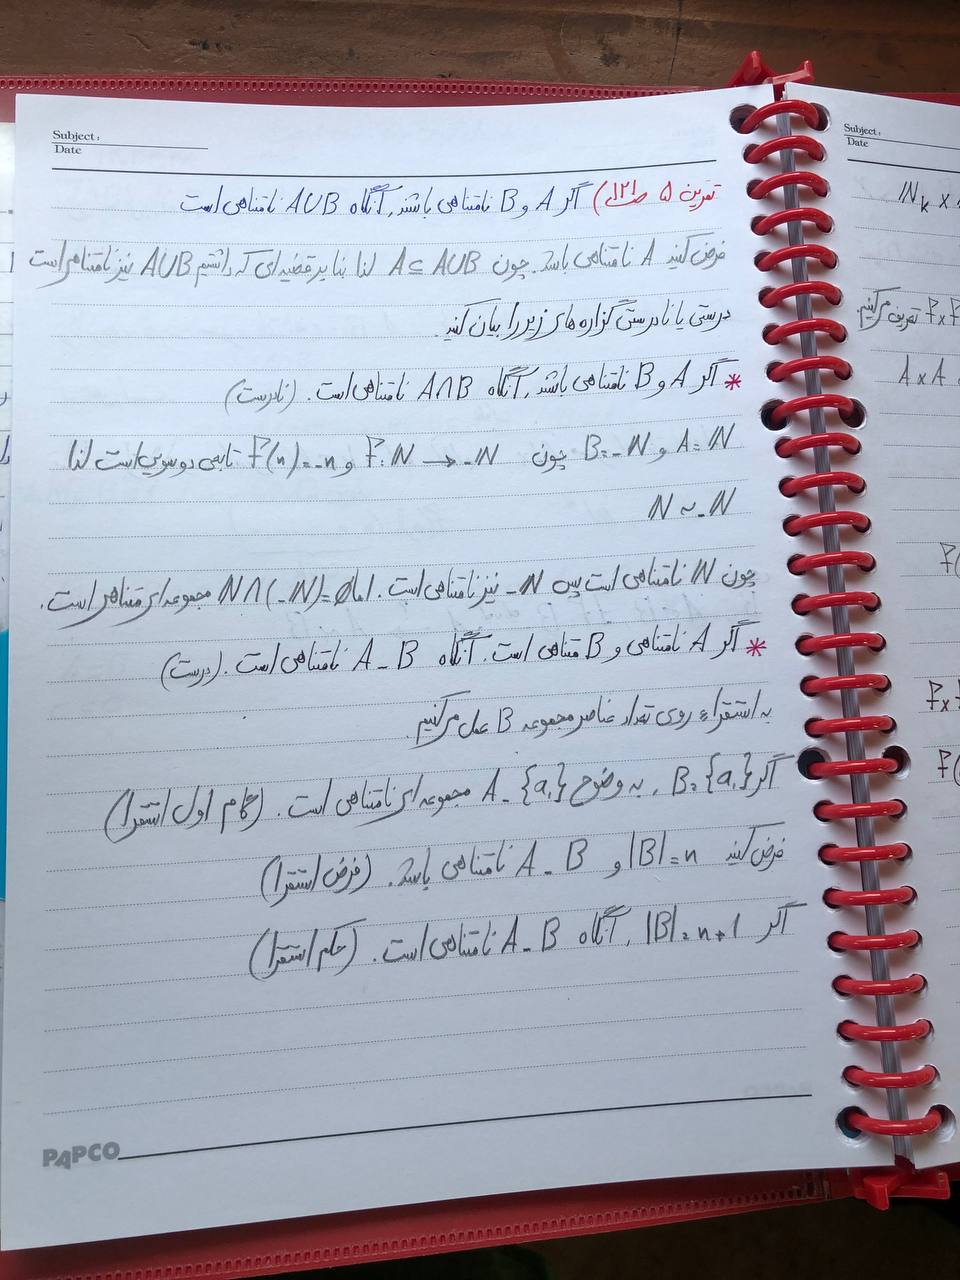 Subject:
Date
تمرین ۵ ص۱۲۱) اگر A و B نامتناهی باشند، آنگاه A∪B نامتناهی است
فرض کنید A نامتناهی باشد. چون A⊆A∪B لذا بنا بر قضیه‌ای که داشتیم A∪B نیز نامتناهی است
درستی یا نادرستی گزاره‌های زیر را بیان کنید.
* اگر A و B نامتناهی باشند، آنگاه A∩B نامتناهی است. (نادرست)
A=ℕ و B=-ℕ چون f:ℕ → -ℕ و f(n)=-n تابعی دوسویی است لذا
ℕ ~ -ℕ
چون ℕ نامتناهی است پس -ℕ نیز نامتناهی است. اما ℕ∩(-ℕ)=∅ مجموعه‌ای متناهی است.
* اگر A نامتناهی و B متناهی است. آنگاه A-B نامتناهی است. (درست)
به استقراء روی تعداد عناصر مجموعه B عمل می‌کنیم.
اگر B={a₁}، به وضوح A-{a₁} مجموعه‌ای نامتناهی است. (گام اول استقرا)
فرض کنید |B|=n و A-B نامتناهی باشد. (فرض استقرا)
اگر |B|=n+1، آنگاه A-B نامتناهی است. (حکم استقرا)
PAPCO
Subject:
Date
ℕₖ ×
f×f تعریف می‌کنیم.
A×A
f(
f×f
f(